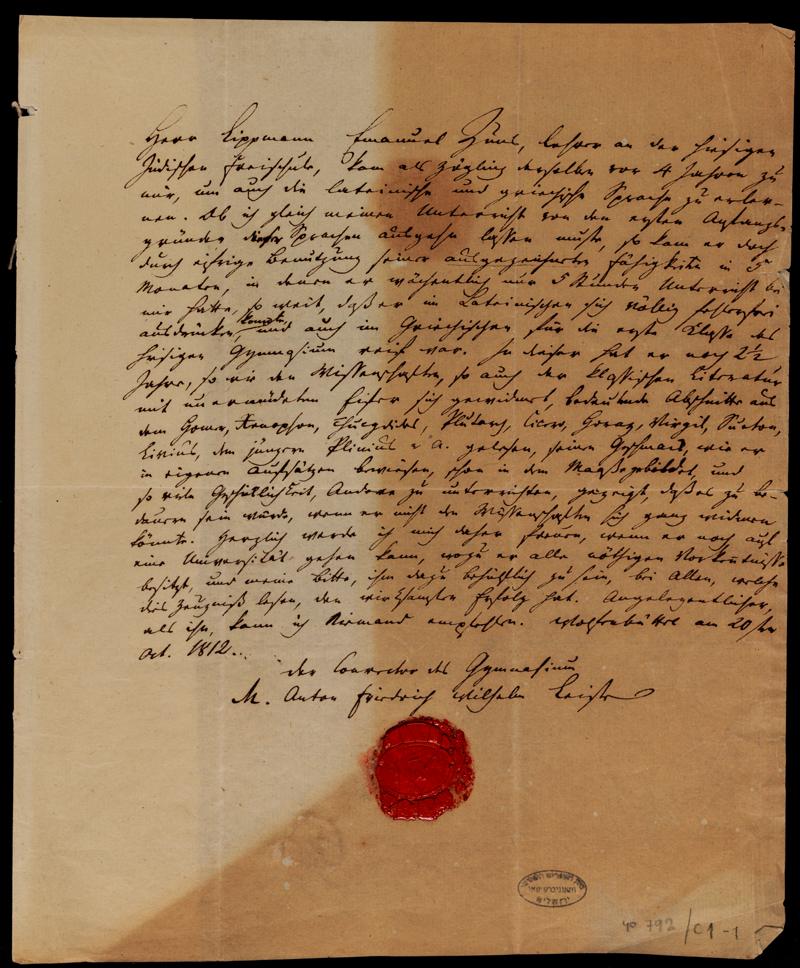 Herr Lippmann Emanuel Zuns, Lehrer an der hiesigen
Jüdischen Freischule, kam als Zögling derselben vor 4 Jahren zu
mir, um auch die lateinische und griechische Sprache zu erler-
nen. Ob ich gleich meinen Unterricht von den ersten Anfangs-
gründen dieser Sprachen ausgehn lassen mußte, so kam er doch
durch eifrige Benutzung seiner ausgezeichneten Fähigkeiten in 5
Monaten, in denen er wöchentlich nur 5 Stunden Unterricht bei
mir hatte, so weit, daß er im Lateinischen sich völlig fehlerfrei
ausdrücken konnte, und auch im Griechischen für die erste Klasse des
hiesigen Gymnasium reif war. In dieser hat er noch 2½
Jahre, so wie den Wissenschaften, so auch der klassischen Literatur
mit unermüdeten Eifer sich gewidmet, bedeutende Abschnitte aus
dem Homer, Xenophon, Thucydides, Plutarch, Cicero, Horaz, Virgil, Sueton,
Livius, dem jüngern Plinius u. a. gelesen, seinen Geschmack, wie er
in eigenen Aufsätzen bewiesen, schon in dem Maaße gebildet, und
so viele Geschicklichkeit, Andere zu unterrichten, gezeigt, daß es zu be-
dauern sein würde, wenn er nicht den Wissenschaften sich ganz widmen
könnte. Herzlich werde ich mich daher freuen, wenn er noch auf
eine Universität gehen kann, wozu er alle nöthigen Vorkenntnisse
besitzt, und meine Bitte, ihm dazu behülflich zu sein, bei Allen, welche
dies Zeugniß lesen, den wirksamsten Erfolg hat. Angelegentlicher,
als ihn, kann ich Niemand empfehlen. Wolfenbüttel am 20sten
Oct. 1812.
der Conrector des Gymnasium
M. Anton Friedrich Wilhelm Leiste
4° 792/C1-1